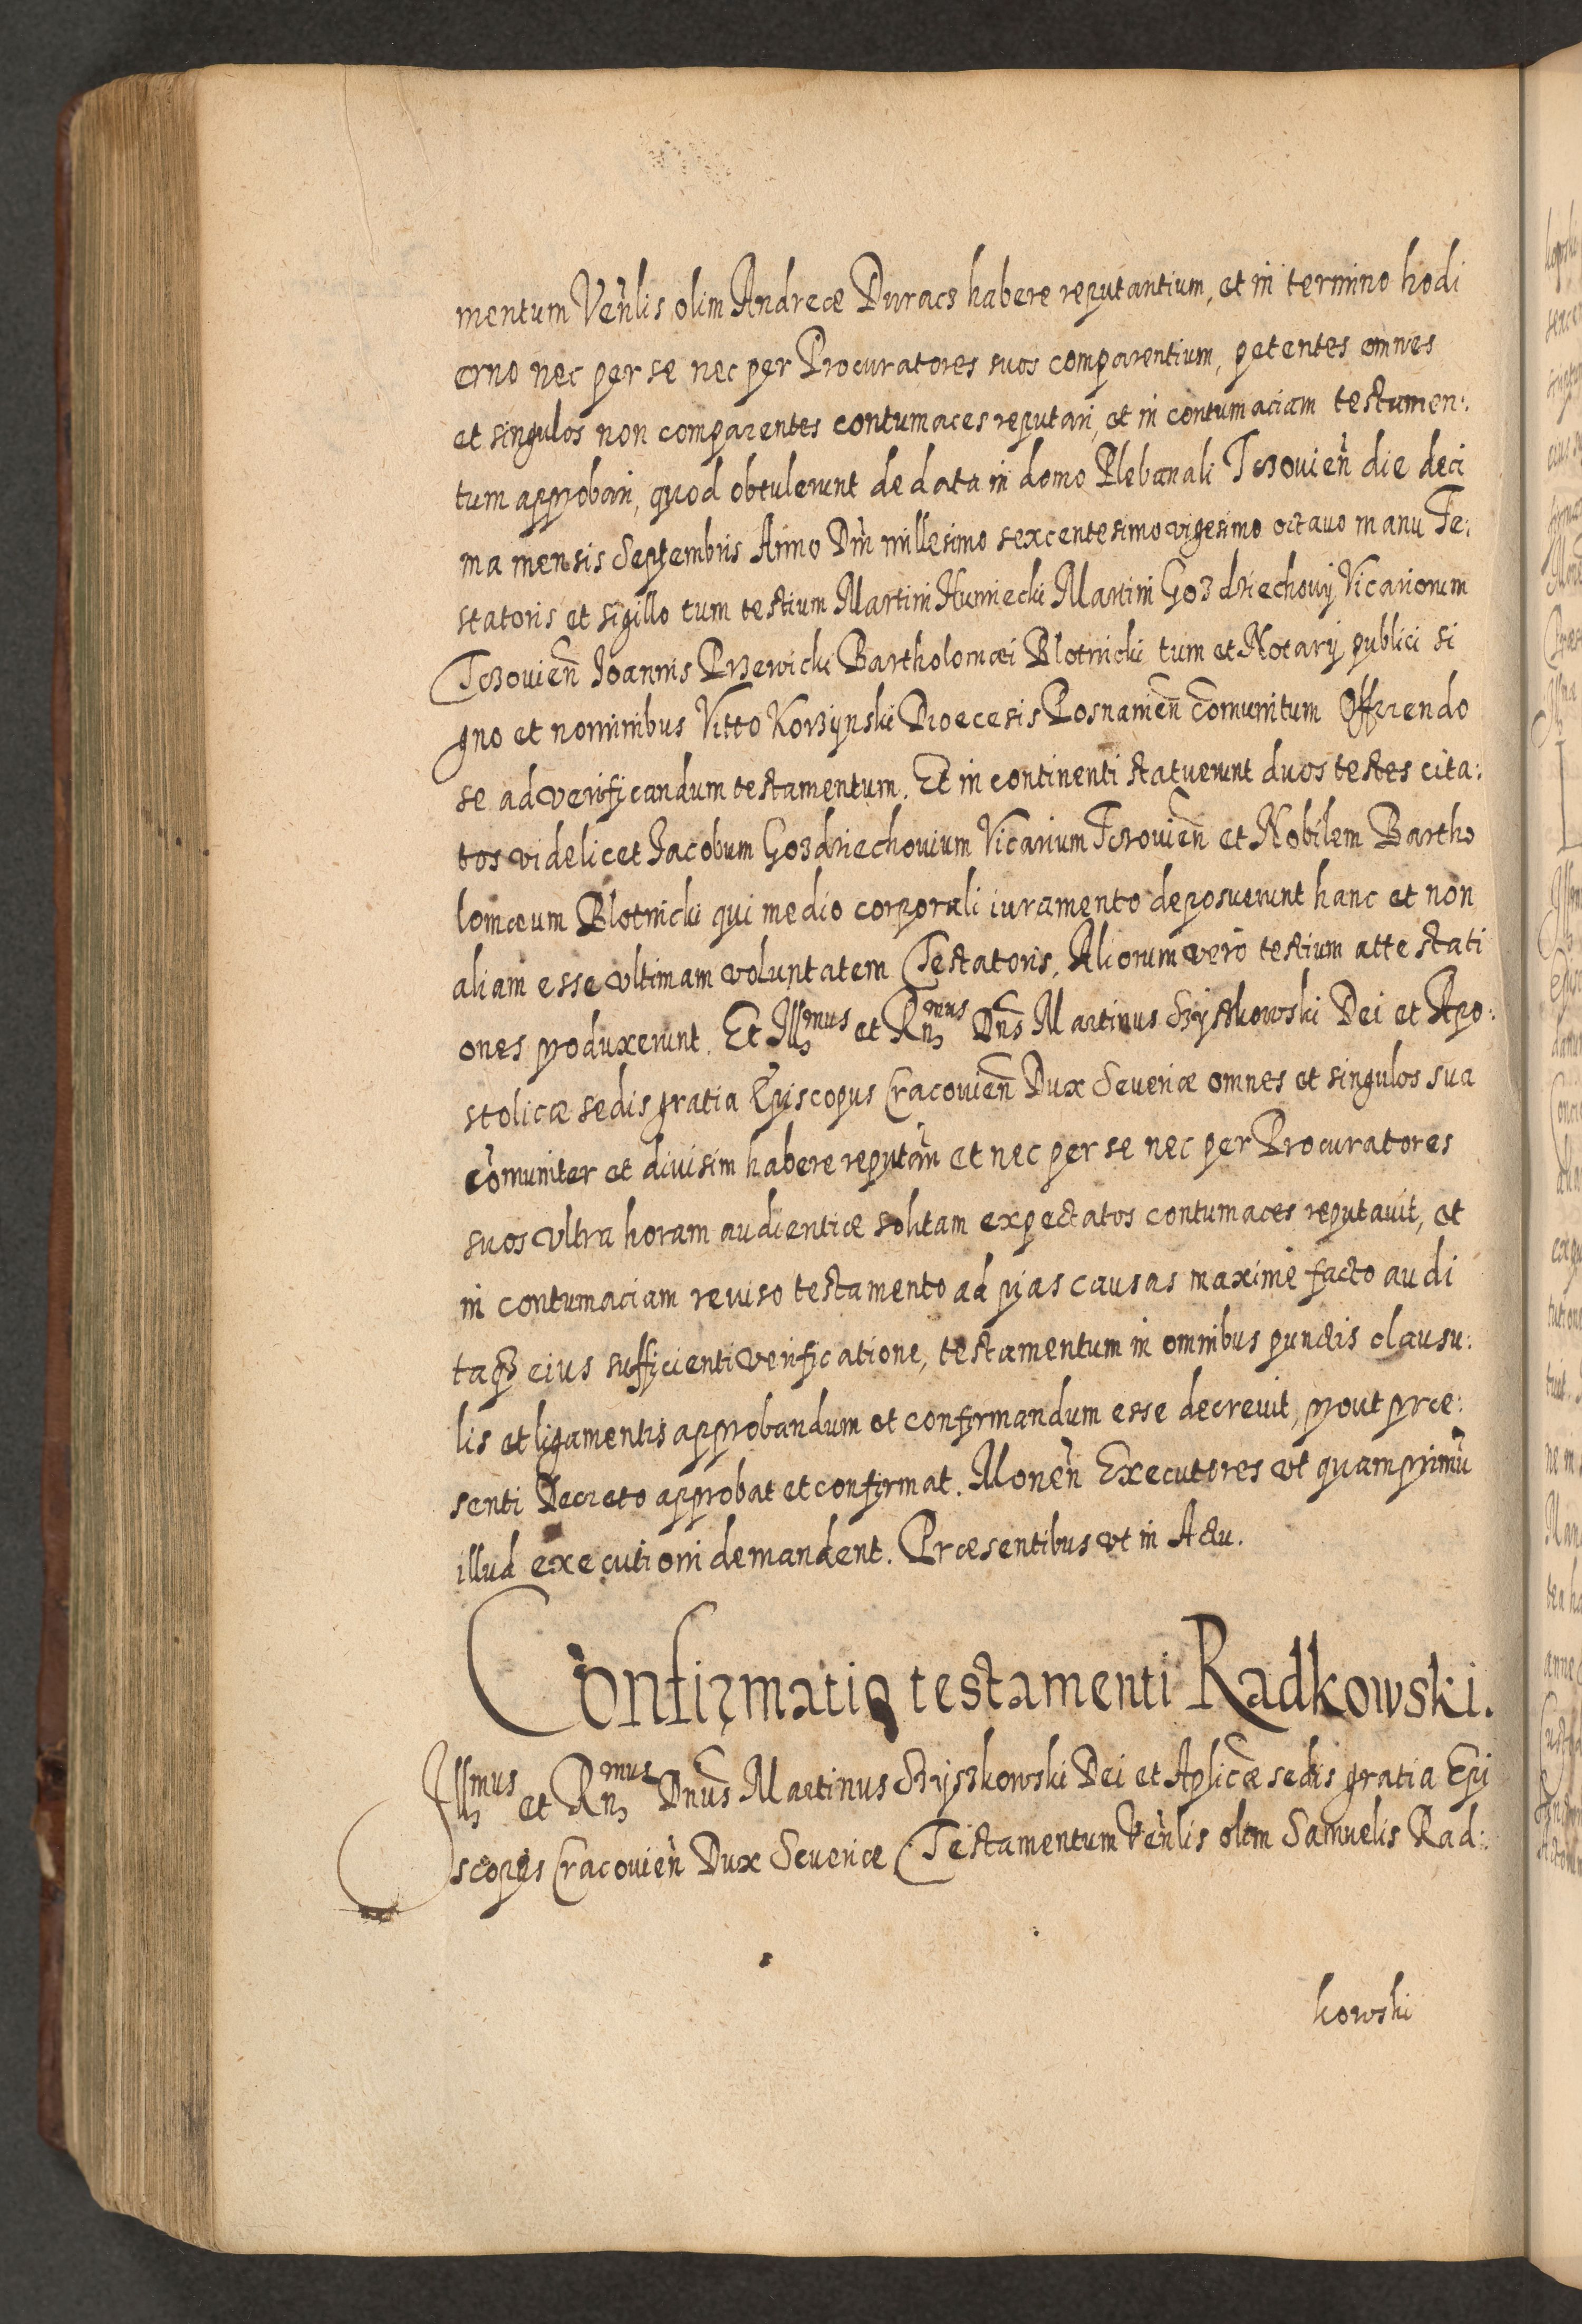 mentum Venlis olim Andreæ Duracz habere reputantium, et in termino hodi
erno nec per se nec per Procuratores suos comparentium, petentes omnes
et singulos non comparentes contumaces reputari, et in contumaciam testamen:
tum approbari, quod obtulerunt de data in domo Plebanali Tczouien die deci
ma mensis Septembris Anno Dni millesimo sexcentesimo vigesimo octauo manu Te:
statoris et sigillo tum testium Martini Humiecki Martini Gozdziechouij Vicariorum
Tczouien Ioannis Przewicki Bartholomæi Blotnicki tum et Notarij publici si
gno et nominibus Vitto Korzynski Dioecesis Posnanien comunitum Offerendo
se ad verificandum testamentum. Et in continenti statuerunt duos testes cita:
tos videlicet Jacobum Gozdziechouium Vicarium Tczouien et Nobilem Bartho
lomæum Blotnicki qui medio corporali iuramento deposuerunt hanc et non
aliam esse vltimam voluntatem Testatoris, Aliorum vero testium attestati
ones produxerunt. Et Illmus et Rnmus Dns Martinus Szyszkowski Dei et Apo:
stolicæ sedis gratia Episcopus Cracouien Dux Seueriæ omnes et singulos sua
comuniter et diuisim habere reputan et nec per se nec per Procuratores
suos vltra horam audientiæ solitam expectatos contumaces reputauit, et
in contumaciam reuiso testamento ad pias causas maxime facto audi
taq3 eius sufficienti verificatione, testamentum in omnibus punctis clausu:
lis et ligamentis approbandum et confirmandum esse decreuit, prout præ:
senti Decreto approbat et confirmat. Monen Executores vt quamprimu
illud executioni demandent. Præsentibus vt in Actu.
Confirmatio testamenti Radkowski.
Illmus et Rnmus Dnus Martinus Szyszkowski Dei et Aplicæ sedis gratia Epi
scopus Cracouien Dux Seueriæ Testamentum Venlis olim Samuelis Rad:
kowski